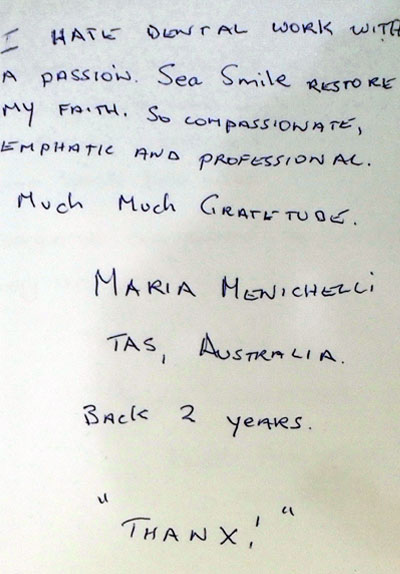 I HATE DENTAL WORK WITH
A PASSION. Sea Smile RESTORE
MY FAITH. So COMPASSIONATE,
EMPHATIC AND PROFESSIONAL.
Much Much GRATETUDE.
MARIA MENICHELLI
TAS, AUSTRALIA.
Back 2 years.
"THANX!"